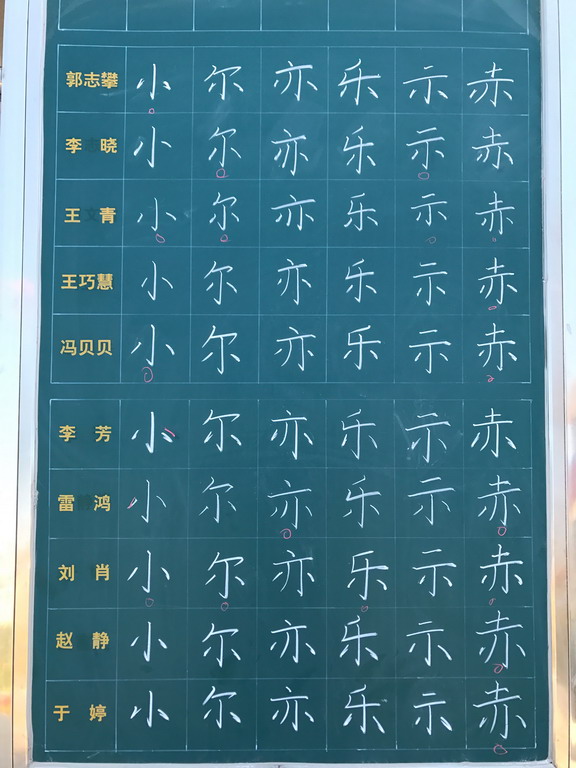 郭志攀 小 尔 亦 乐 示 赤
李 晓 小 尔 亦 乐 示 赤
王文青 小 尔 亦 乐 示 赤
王巧慧 小 尔 亦 乐 示 赤
冯贝贝 小 尔 亦 乐 示 赤
李 芳 小 尔 亦 乐 示 赤
雷 鸿 小 尔 亦 乐 示 赤
刘 肖 小 尔 亦 乐 示 赤
赵 静 小 尔 亦 乐 示 赤
于 婷 小 尔 亦 乐 示 赤